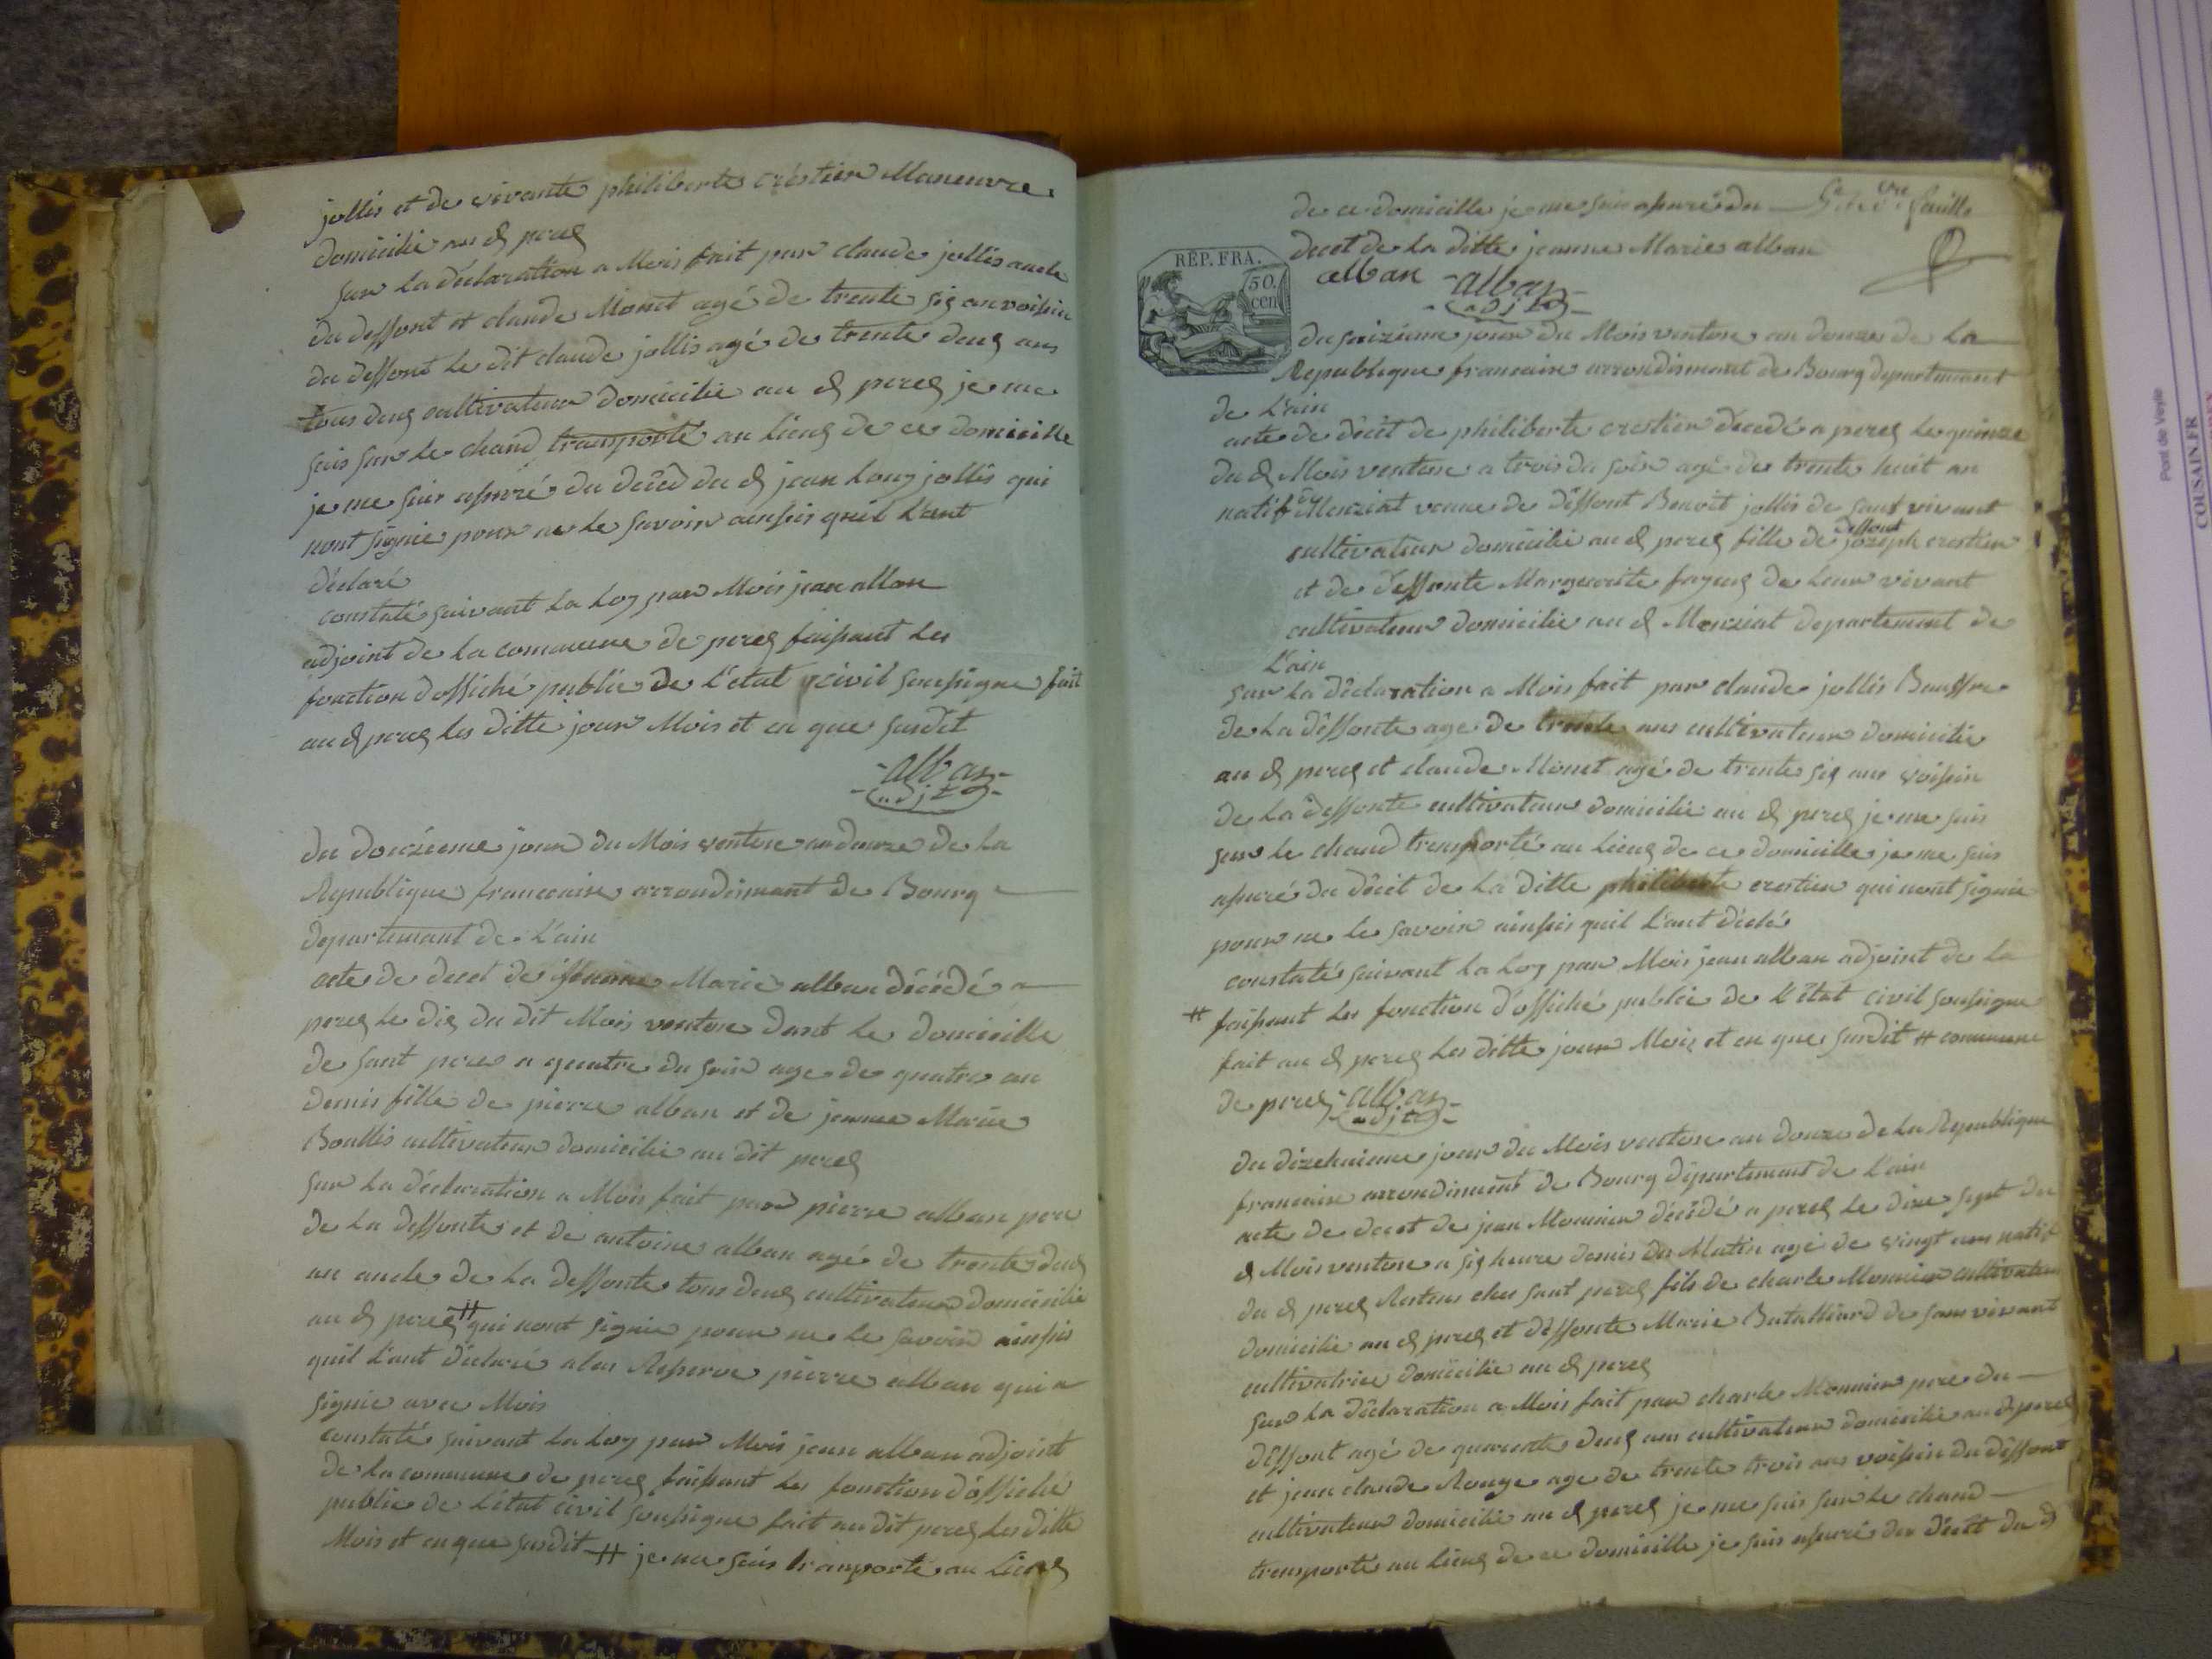 jollis et de vivante philiberte crestien Maneuvre
domicilié au d perez
sur la déclaration a Mois fait par claude jollis oncle
du deffont et claude Monet agé de trente six an voisin
du deffont le dit claude jollis agé de trente deuz ans
tous deuz cultivateur domicilié au d perez je me
suis sur le chand transporté au lieuz de ce domicille
je me suis assuré du décéd du d jean Louy jollis qui
nont signié pour ne le savoir ainssis quil l'ant
déclaré
constaté suivant la Loy par Mois jean alban
adjoint de la commune de perez faissant les
fonction d'offiché public de l'état civil soussigne fait
au d perez les ditte jour Mois et en que susdit
alban
adjt
du douziéme jour du Mois ventose an douze de la
Republique francaise arrondismant de Bourg
departemant de l'ain
acte de decet de jeanne Marie alban décédé a
perez le dix du dit Mois ventose dant le domicille
de sant pere a quatre du soir age de quatre an
demis fille de pierre alban et de jeanne Marie
Boullis cultivateur domicilié au dit perez
sur la déclaration a Mois fait par pierre alban pere
de la deffonte et de antoine alban agé de trente deuz
an oncle de la deffonte tous deuz cultivateur domicilié
au d perez # qui nont signié pour ne le savoir ainsis
quil l'ant déclaré alas Reserve pierre alban qui a
signié avec Mois
constaté suivant la Loy par Mois jean alban adjoint
de la commune de perez faissant les fonction d'offiché
public de l'état civil soussigne fait au dit perez les ditte
Mois et en que susdit # je me suis transporté au lieuz
de ce domicille je me suis assuré du
feuille
decet de la ditte jeanne Marie alban
RÉP. FRA.
50.
cen
alban alban
adjt
du saizieme jour du Mois ventose an douze de la
Republique francaise arrondismant de Bourg departemant
de l'ain
acte de décèt de philiberte crestien décédé a perez le quinze
du d Mois ventose a trois du soir agé de trente huit an
natif de Menziat veuve de deffont Benoit jollis de sant vivant
cultivateur domicilié au d perez fille de deffont jozeph crestien
et de deffonte Marguerite fayeuz de leur vivant
cultivateur domicilié au d Menziat departement de
l'ain
sur la déclaration a Mois fait par claude jollis Bauffre
de la deffonte age de trente ans cultivateur domicilié
au d perez et claude Monet agé de trente six ans voisin
de la deffonte cultivateur domicilié au d perez je me suis
sur le chaud transporté au lieuz de ce domicille je me suis
assuré du décèt de la ditte philiberte crestien qui nont signié
pour ne le savoir ainssis quil l'ant décla
constaté suivant la Loy par Mois jean alban adjoint de la
# faissant les fonction d'offiché public de l'état civil soussigne
fait au d perez les ditte jour Mois et en que susdit # commune
de perez alban
adjt
du dizehuieme jour du Mois ventose an douze de la Republique
francaise arrondiment de Bourg departemant de l'ain
acte de decet de jean Monnier décédé a perez le dixe sept du
d Mois ventose a six heure demis du Matin agé de vingt ans natif
du d perez Restens ches sant perez fils de charle Monnier cultivateur
domicilié au d perez et deffonte Marie Batalliard de sant vivant
cultivatrice domicilié au d perez
sur la déclaration a Mois fait par charle Monnier pere du
deffont agé de quarante deuz ans cultivateur domicilié au d perez
et jean claude Rouge age de trente trois ans voissin du deffont
cultivateur domicilié au d perez je me suis sur le chand
transporté au lieuz de ce domicille je suis assuré du décèt du d
Pont de Veyle
COUSAIN.FR